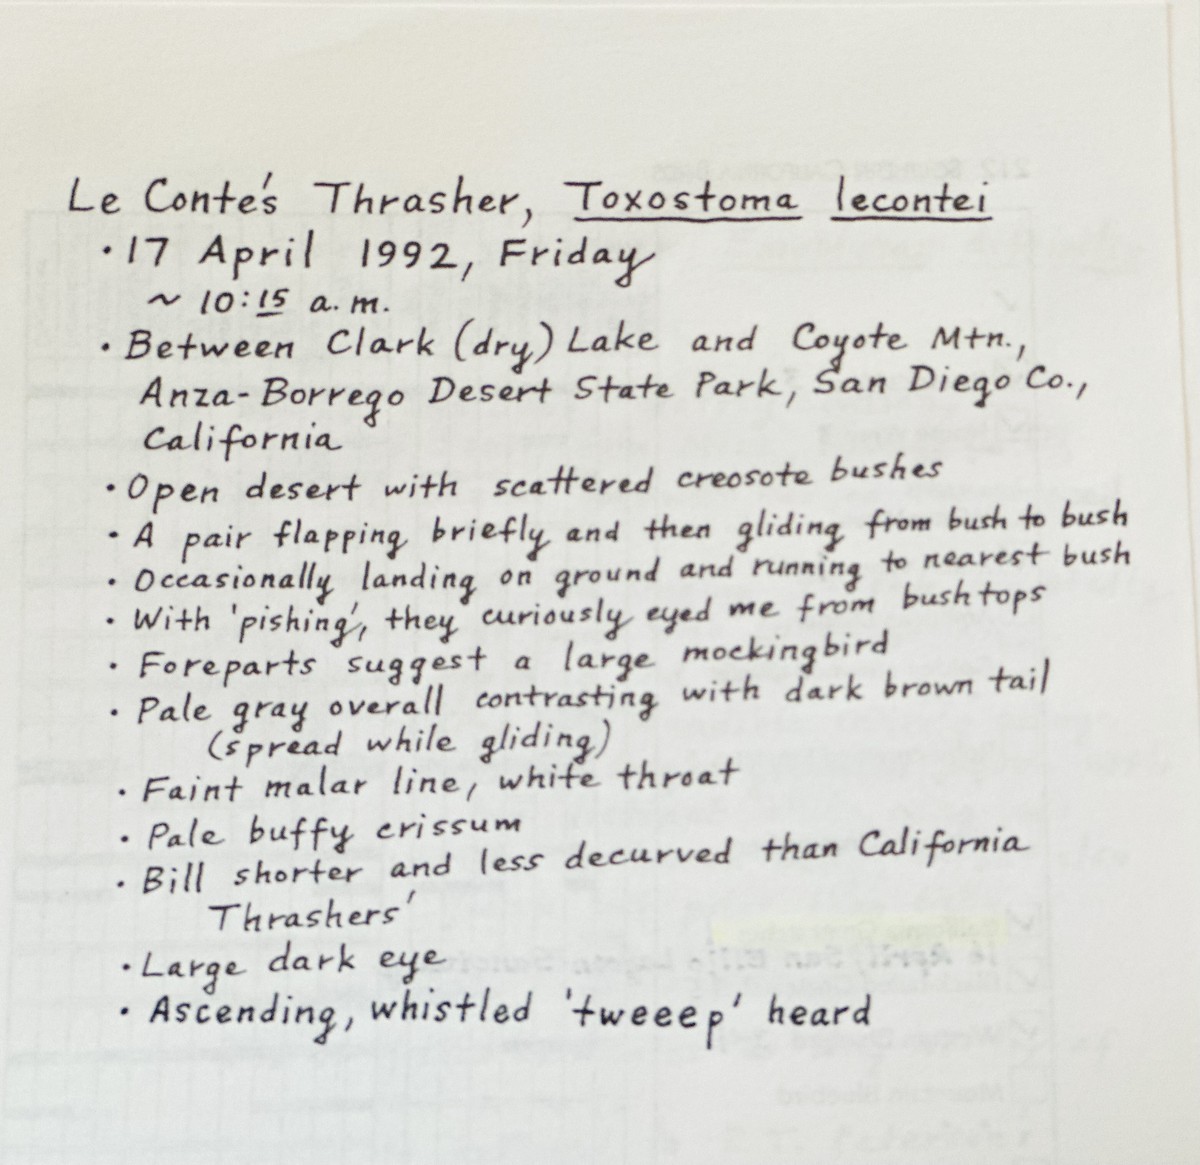 Le Conte's Thrasher, Toxostoma lecontei
• 17 April 1992, Friday
~ 10:15 a.m.
• Between Clark (dry) Lake and Coyote Mtn.,
Anza-Borrego Desert State Park, San Diego Co.,
California
• Open desert with scattered creosote bushes
• A pair flapping briefly and then gliding from bush to bush
• Occasionally landing on ground and running to nearest bush
• With 'pishing', they curiously eyed me from bushtops
• Foreparts suggest a large mockingbird
• Pale gray overall contrasting with dark brown tail
(spread while gliding)
• Faint malar line, white throat
• Pale buffy crissum
• Bill shorter and less decurved than California
Thrashers'
• Large dark eye
• Ascending, whistled 'tweeep' heard